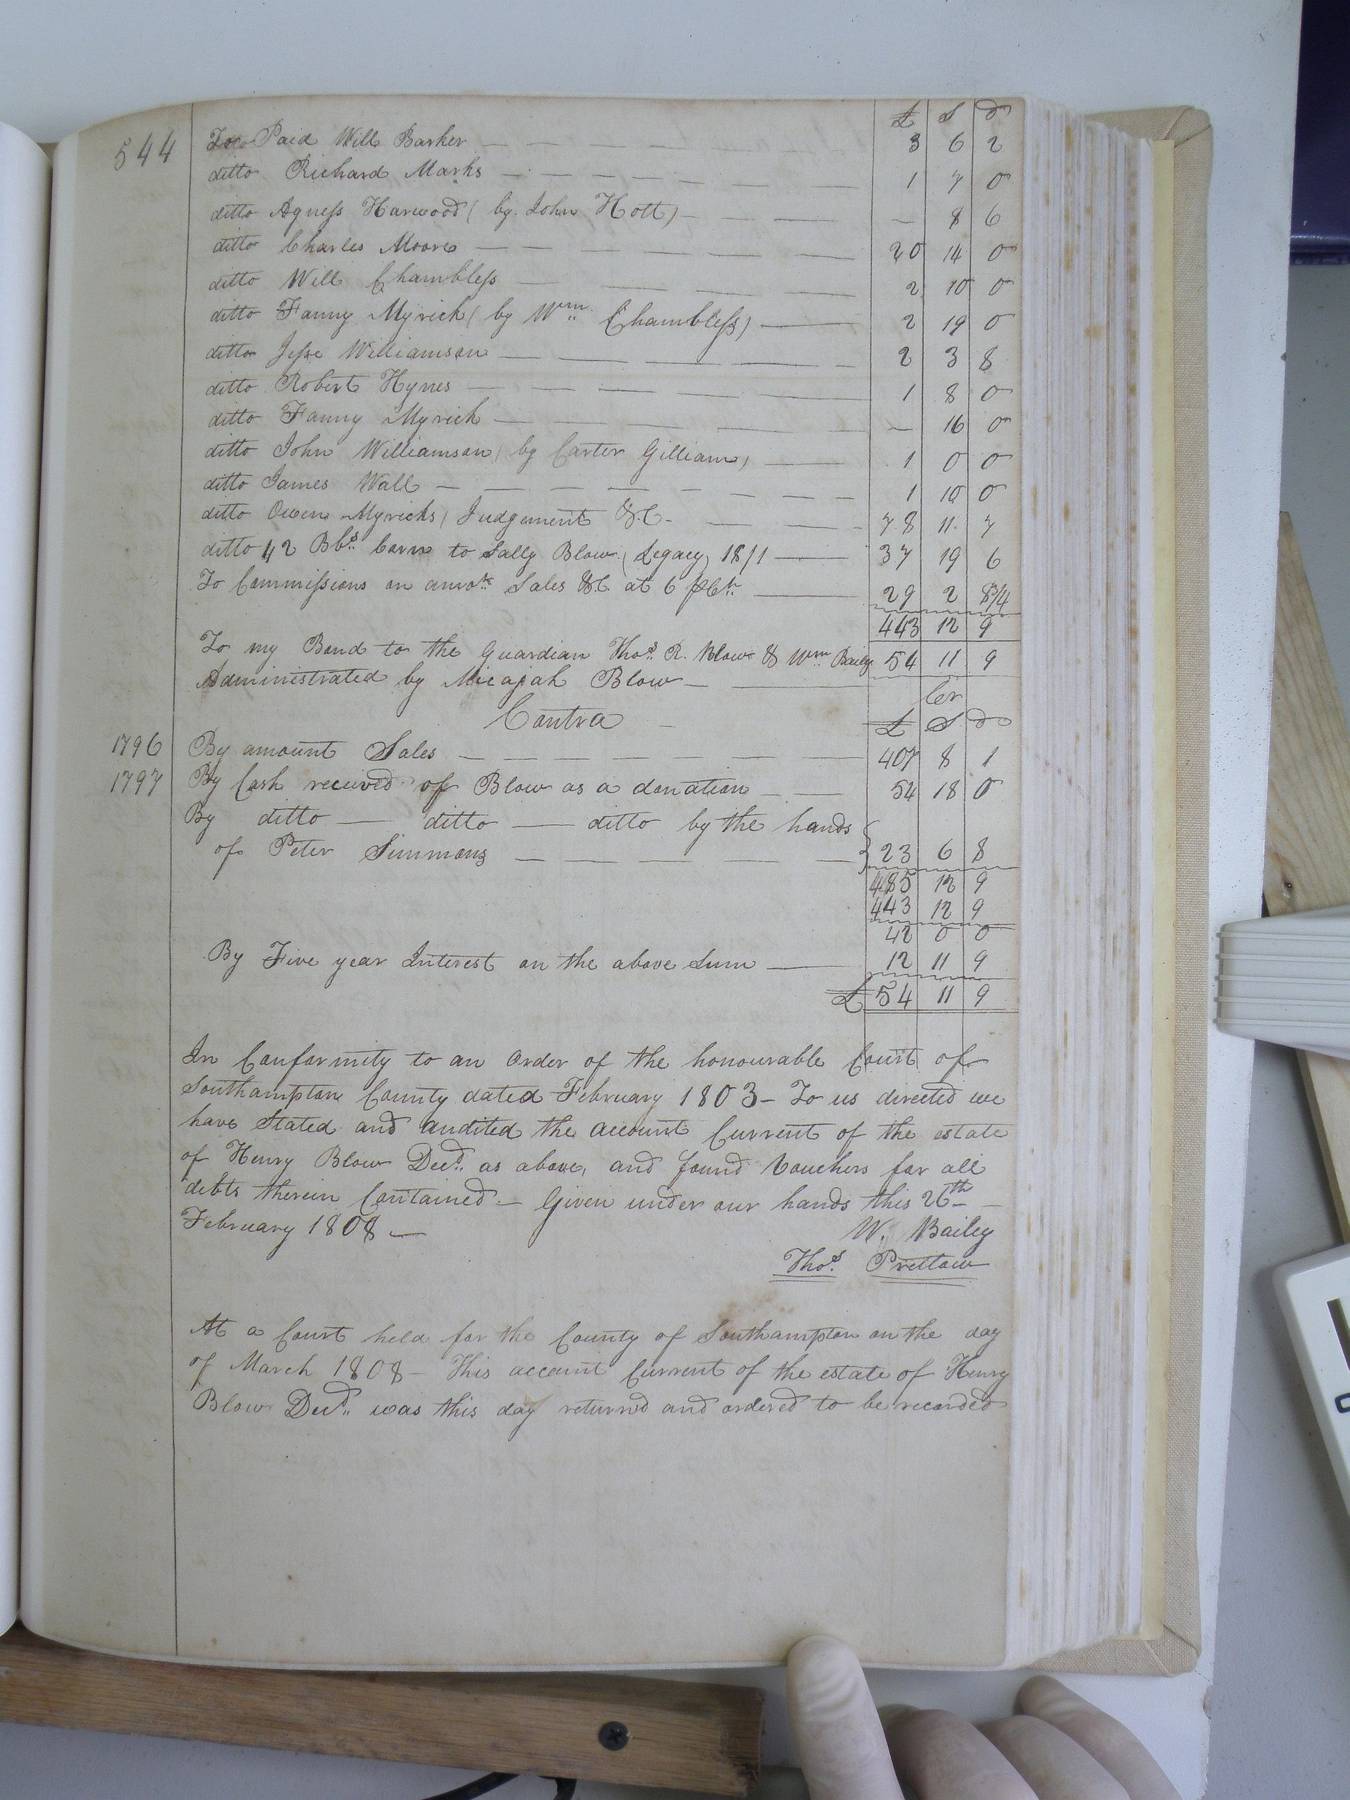 £ S D
544 To Paid Will Barker 3 6 2
ditto Richard Marks 1 7 0
ditto Agness Harwood (by John Hott) – 8 6
ditto Charles Moore 20 14 0
ditto Will Chambless 2 10 0
ditto Fanny Myrick (by Wm Chambless) 2 19 0
ditto Jesse Williamson 2 3 8
ditto Robert Hynes 1 8 0
ditto Fanny Myrick – 16 0
ditto John Williamson (by Carter Gilliam) 1 0 0
ditto James Wall 1 10 0
ditto Owen Myricks (Judgement &C. 78 11 7
ditto 42 Bbs Corn to Sally Blow (Legacy) 18/1 37 19 6
To Commissions on amots Sales &C at 6 prCt 29 2 8 3/4
443 12 9
To my Bond to the Guardian Thos. R. Blow & Wm Baily 54 11 9
Administrated by Micajah Blow
Cr
Contra £ S D
1796 By amount Sales 407 8 1
1797 By Cash received of Blow as a donation 54 18 0
By ditto — ditto — ditto by the hands
of Peter Simmons 23 6 8
485 12 9
443 12 9
42 0 0
By Five year Interest on the above Sum 12 11 9
£ 54 11 9
In Conformity to an Order of the honourable Court of
Southampton County dated February 1803 – To us directed we
have Stated and audited the account Current of the estate
of Henry Blow Decd. as above, and found Vouchers for all
debts therein Contained – Given under our hands this 26th
February 1808 –
W. Bailey
Thos. Pretlow
At a Court held for the County of Southampton on the day
of March 1808 – This account Current of the estate of Henry
Blow Decd. was this day returnd and ordered to be recorded